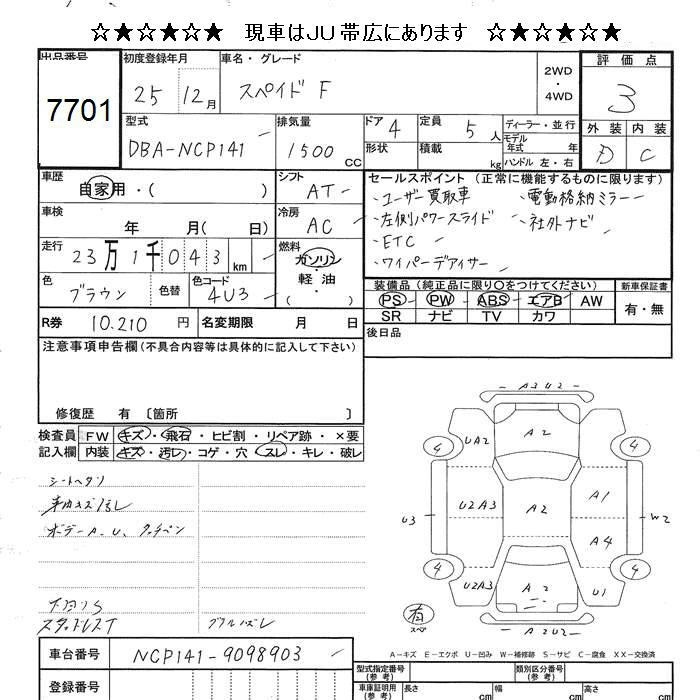 ☆★☆★☆★ 現車はJU帯広にあります ☆★☆★☆★
出品番号 7701
初度登録年月 25 12月
車名・グレード スペイド F
2WD・4WD
評価点 3
型式 DBA-NCP141
排気量 1500 CC
ドア 4
形状
定員 5人
積載 kg
ディーラー・並行
モデル年式 年
ハンドル 左・右
外装 D
内装 C
車歴 自家用・( )
シフト AT
車検 年 月( 日)
冷房 AC
走行 23万1千043 km
燃料 ガソリン・軽油 ( )
色 ブラウン
色替
色コード 4U3
R券 10.210 円
名変期限 月 日
セールスポイント (正常に機能するものに限ります)
・ユーザー買取車 ・電動格納ミラー
・左側パワースライド ・社外ナビ
・ETC
・ワイパーデアイサー
装備品 (純正品に限り〇をつけてください)
PS PW ABS エアB AW
SR ナビ TV カワ
新車保証書 有・無
後日品
注意事項申告欄 (不具合内容等は具体的に記入して下さい)
修復歴 有 〔箇所 〕
検査員記入欄
FW キズ・飛石・ヒビ割・リペア跡・×要
内装 キズ・汚レ・コゲ・穴・スレ・キレ・破レ
シートヘタリ
ボデーA.U、タッチペン
下回りS
スタッドレスT
A3U2
A2
4
UA2
4
U3
U2A3
A2
A1
W2
A4
4
U2A3
A2
U1
4
A2U2
有
スペア
A-キズ E-エクボ U-凹み W-補修跡 S-サビ C-腐食 XX-交換済
車台番号 NCP141-9098903
登録番号
型式指定番号 (参考)
類別区分番号 (参考)
車庫証明用 (参考)
長さ cm
幅 cm
高さ cm